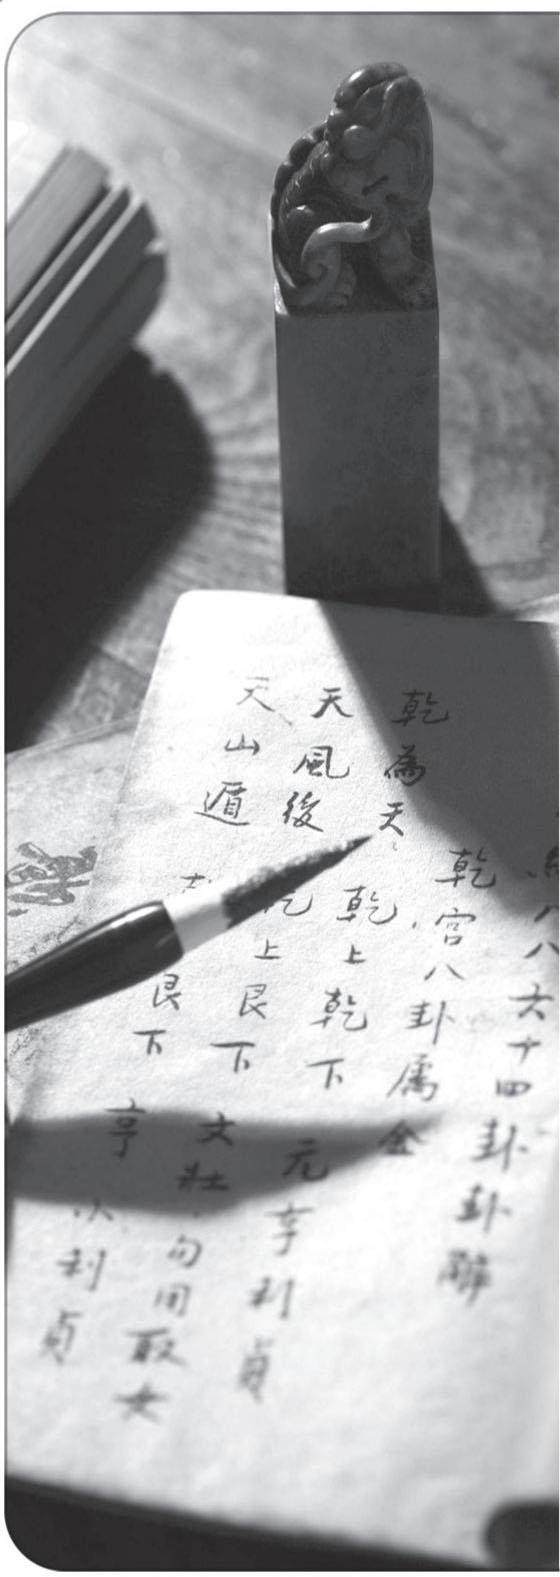 八八六十四卦卦辭
乾宮八卦属金
乾為天 乾上乾下 元亨利貞
天風後 上艮下 文壯勿用取女
天山遁 艮下 亨小利貞